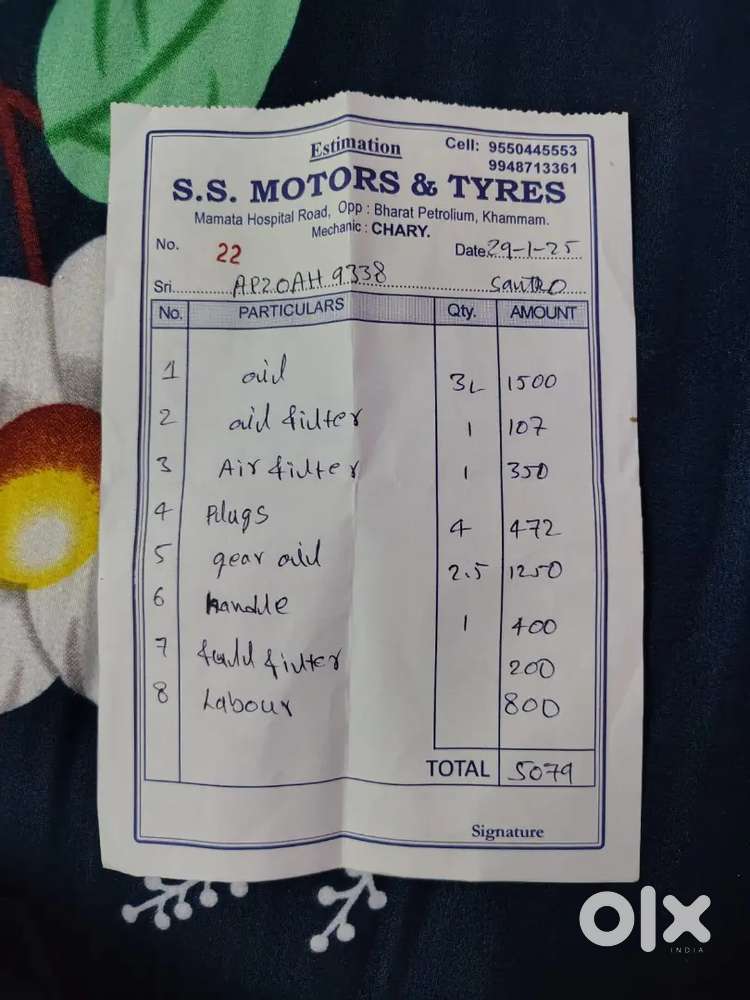 Estimation
Cell: 9550445553
9948713361
S.S. MOTORS & TYRES
Mamata Hospital Road, Opp : Bharat Petrolium, Khammam.
Mechanic : CHARY.
No. 22 Date 29-1-25
Sri AP20AH9338 Santro
No. PARTICULARS Qty. AMOUNT
1 oil 3L 1500
2 oil filter 1 107
3 Air filter 1 350
4 Plugs 4 472
5 gear oil 2.5 1250
6 handle 1 400
7 fuel filter 200
8 Labour 800
TOTAL 5079
Signature
olx
INDIA